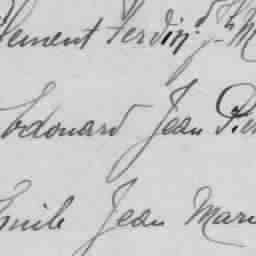 lement Ferdin.d J.h M
Edouard Jean Pier
Emile Jean Mari